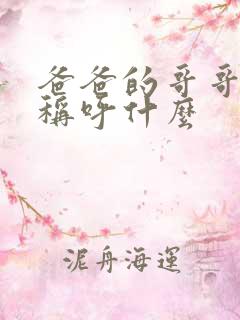 爸爸的哥哥
稱呼什麼
泥舟海運